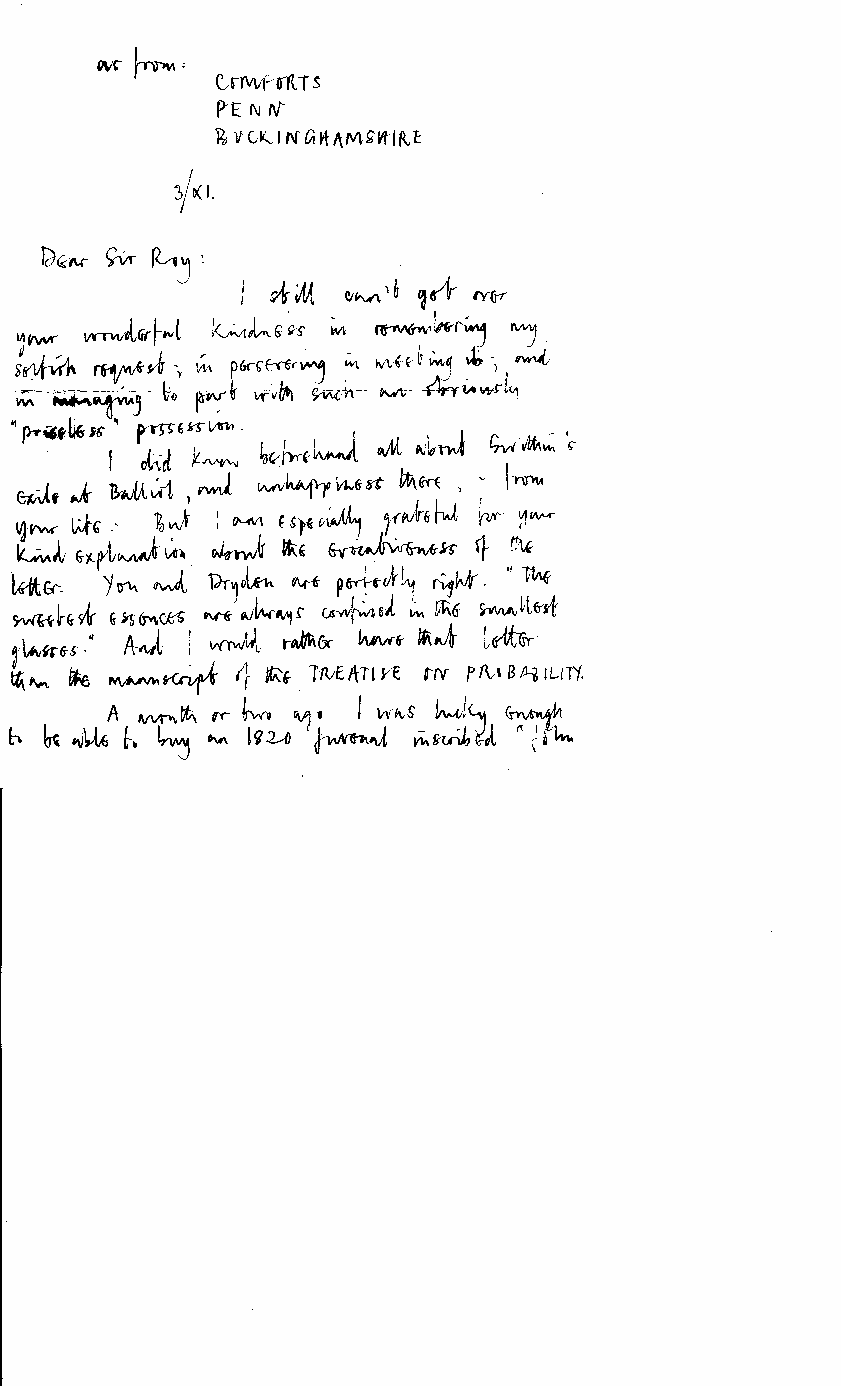 as from:
COMFORTS
PENN
BUCKINGHAMSHIRE
3/XI.
Dear Sir Roy:
I still can't get over
your wonderful kindness in remembering my
selfish request; in persevering in meeting it; and
in managing to part with such an obviously
"priceless" possession.
I did know beforehand all about Swithin's
exile at Balliol, and unhappiness there, - from
your life. But I am especially grateful for your
kind explanation about the evocativeness of the
letter. You and Dryden are perfectly right. "The
sweetest essences are always confined in the smallest
glasses." And I would rather have that letter
than the manuscript of the TREATISE ON PROBABILITY.
A month or two ago I was lucky enough
to be able to buy an 1820 Juvenal inscribed "John